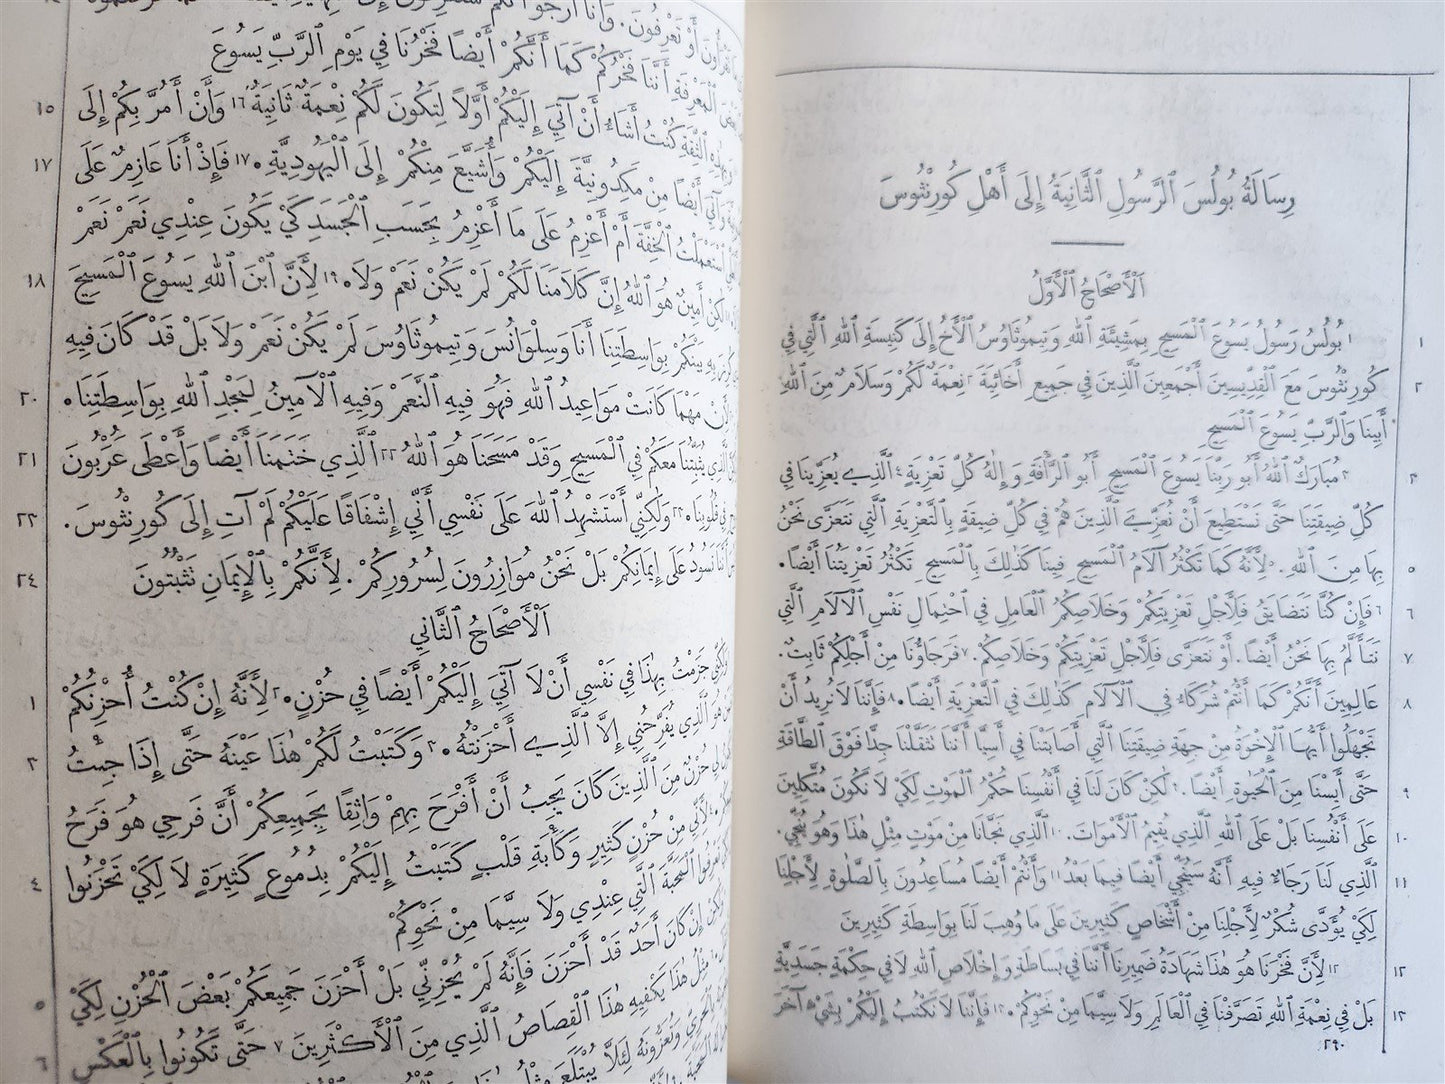 رِسَالَةُ بُولُسَ ٱلرَّسُولِ ٱلثَّانِيَةُ إِلَى أَهْلِ كُورِنْثُوسَ
اَلْأَصْحَاحُ ٱلْأَوَّلُ
١ ١ بُولُسُ رَسُولُ يَسُوعَ ٱلْمَسِيحِ بِمَشِيئَةِ ٱللهِ وَتِيمُوثَاوُسُ ٱلْأَخُ إِلَى كَنِيسَةِ ٱللهِ ٱلَّتِي فِي
٢ كُورِنْثُوسَ مَعَ ٱلْقِدِّيسِينَ أَجْمَعِينَ ٱلَّذِينَ فِي جَمِيعِ أَخَائِيَةَ ٢ نِعْمَةٌ لَكُمْ وَسَلَامٌ مِنَ ٱللهِ
أَبِينَا وَٱلرَّبِّ يَسُوعَ ٱلْمَسِيحِ
٣ ٣ مُبَارَكٌ ٱللهُ أَبُو رَبِّنَا يَسُوعَ ٱلْمَسِيحِ أَبُو ٱلرَّأْفَةِ وَإِلٰهُ كُلِّ تَعْزِيَةٍ ٤ ٱلَّذِي يُعَزِّينَا فِي
كُلِّ ضِيقَتِنَا حَتَّى نَسْتَطِيعَ أَنْ نُعَزِّيَ ٱلَّذِينَ هُمْ فِي كُلِّ ضِيقَةٍ بِٱلتَّعْزِيَةِ ٱلَّتِي نَتَعَزَّى نَحْنُ
٥ بِهَا مِنَ ٱللهِ. ٥ لِأَنَّهُ كَمَا تَكْثُرُ آلَامُ ٱلْمَسِيحِ فِينَا كَذٰلِكَ بِٱلْمَسِيحِ تَكْثُرُ تَعْزِيَتُنَا أَيْضًا.
٦ ٦ فَإِنْ كُنَّا نَتَضَايَقُ فَلِأَجْلِ تَعْزِيَتِكُمْ وَخَلَاصِكُمُ ٱلْعَامِلِ فِي ٱحْتِمَالِ نَفْسِ ٱلْآلَامِ ٱلَّتِي
٧ نَتَأَلَّمُ بِهَا نَحْنُ أَيْضًا. أَوْ نَتَعَزَّى فَلِأَجْلِ تَعْزِيَتِكُمْ وَخَلَاصِكُمْ. ٧ فَرَجَاؤُنَا مِنْ أَجْلِكُمْ ثَابِتٌ.
٨ عَالِمِينَ أَنَّكُمْ كَمَا أَنْتُمْ شُرَكَاءُ فِي ٱلْآلَامِ كَذٰلِكَ فِي ٱلتَّعْزِيَةِ أَيْضًا. ٨ فَإِنَّنَا لَا نُرِيدُ أَنْ
تَجْهَلُوا أَيُّهَا ٱلْإِخْوَةُ مِنْ جِهَةِ ضِيقَتِنَا ٱلَّتِي أَصَابَتْنَا فِي أَسِيَّا أَنَّنَا تَثَقَّلْنَا جِدًّا فَوْقَ ٱلطَّاقَةِ
٩ حَتَّى أَيِسْنَا مِنَ ٱلْحَيٰوةِ أَيْضًا. ٩ لٰكِنْ كَانَ لَنَا فِي أَنْفُسِنَا حُكْمُ ٱلْمَوْتِ لِكَيْ لَا نَكُونَ مُتَّكِلِينَ
١٠ عَلَى أَنْفُسِنَا بَلْ عَلَى ٱللهِ ٱلَّذِي يُقِيمُ ٱلْأَمْوَاتَ. ١٠ ٱلَّذِي نَجَّانَا مِنْ مَوْتٍ مِثْلِ هٰذَا وَهُوَ يُنَجِّي.
١١ ٱلَّذِي لَنَا رَجَاءٌ فِيهِ أَنَّهُ سَيُنَجِّي أَيْضًا فِيمَا بَعْدُ ١١ وَأَنْتُمْ أَيْضًا مُسَاعِدُونَ بِٱلصَّلٰوةِ لِأَجْلِنَا
لِكَيْ يُؤَدَّى شُكْرٌ لِأَجْلِنَا مِنْ أَشْخَاصٍ كَثِيرِينَ عَلَى مَا وُهِبَ لَنَا بِوَاسِطَةِ كَثِيرِينَ
١٢ ١٢ لِأَنَّ فَخْرَنَا هُوَ هٰذَا شَهَادَةُ ضَمِيرِنَا أَنَّنَا فِي بَسَاطَةٍ وَإِخْلَاصِ ٱللهِ لَا فِي حِكْمَةٍ جَسَدِيَّةٍ
١٣ بَلْ فِي نِعْمَةِ ٱللهِ تَصَرَّفْنَا فِي ٱلْعَالَمِ وَلَا سِيَّمَا مِنْ نَحْوِكُمْ. ١٣ فَإِنَّنَا لَا نَكْتُبُ إِلَيْكُمْ بِشَيْءٍ آخَرَ
٢٩٠
تَقْرَأُونَ أَوْ تَعْرِفُونَ. وَأَنَا أَرْجُو أَنَّكُمْ
ٱلْمَعْرِفَةِ أَنَّنَا فَخْرُكُمْ كَمَا أَنَّكُمْ أَيْضًا فَخْرُنَا فِي يَوْمِ ٱلرَّبِّ يَسُوعَ
١٥ ٱلثِّقَةِ كُنْتُ أَشَاءُ أَنْ آتِيَ إِلَيْكُمْ أَوَّلًا لِتَكُونَ لَكُمْ نِعْمَةٌ ثَانِيَةٌ ١٦ وَأَنْ أَمُرَّ بِكُمْ إِلَى
١٧ وَآتِيَ أَيْضًا مِنْ مَكِدُونِيَّةَ إِلَيْكُمْ وَأُشَيَّعَ مِنْكُمْ إِلَى ٱلْيَهُودِيَّةِ. ١٧ فَإِذْ أَنَا عَازِمٌ عَلَى
ٱسْتَعْمَلْتُ ٱلْخِفَّةَ أَمْ أَعْزِمُ عَلَى مَا أَعْزِمُ بِحَسَبِ ٱلْجَسَدِ كَيْ يَكُونَ عِنْدِي نَعَمْ نَعَمْ
١٨ لٰكِنْ أَمِينٌ هُوَ ٱللهُ إِنَّ كَلَامَنَا لَكُمْ لَمْ يَكُنْ نَعَمْ وَلَا. ١٩ لِأَنَّ ٱبْنَ ٱللهِ يَسُوعَ ٱلْمَسِيحَ
كُرِزَ بِهِ بَيْنَكُمْ بِوَاسِطَتِنَا أَنَا وَسِلْوَانُسَ وَتِيمُوثَاوُسَ لَمْ يَكُنْ نَعَمْ وَلَا بَلْ قَدْ كَانَ فِيهِ
٢٠ لِأَنْ مَهْمَا كَانَتْ مَوَاعِيدُ ٱللهِ فَهُوَ فِيهِ ٱلنَّعَمْ وَفِيهِ ٱلْآمِينُ لِمَجْدِ ٱللهِ بِوَاسِطَتِنَا.
٢١ ٱلَّذِي يُثَبِّتُنَا مَعَكُمْ فِي ٱلْمَسِيحِ وَقَدْ مَسَحَنَا هُوَ ٱللهُ ٢٢ ٱلَّذِي خَتَمَنَا أَيْضًا وَأَعْطَى عَرْبُونَ
٢٣ فِي قُلُوبِنَا. ٢٣ وَلٰكِنِّي أَسْتَشْهِدُ ٱللهَ عَلَى نَفْسِي أَنِّي إِشْفَاقًا عَلَيْكُمْ لَمْ آتِ إِلَى كُورِنْثُوسَ.
٢٤ أَنَّنَا نَسُودُ عَلَى إِيمَانِكُمْ بَلْ نَحْنُ مُوَازِرُونَ لِسُرُورِكُمْ. لِأَنَّكُمْ بِٱلْإِيمَانِ تَثْبُتُونَ
اَلْأَصْحَاحُ ٱلثَّانِي
١ جَزَمْتُ بِهٰذَا فِي نَفْسِي أَنْ لَا آتِيَ إِلَيْكُمْ أَيْضًا فِي حُزْنٍ. ٢ لِأَنَّهُ إِنْ كُنْتُ أُحْزِنُكُمْ
٣ هُوَ ٱلَّذِي يُفَرِّحُنِي إِلَّا ٱلَّذِي أَحْزَنْتُهُ. ٣ وَكَتَبْتُ لَكُمْ هٰذَا عَيْنَهُ حَتَّى إِذَا جِئْتُ
حُزْنٌ مِنَ ٱلَّذِينَ كَانَ يَجِبُ أَنْ أَفْرَحَ بِهِمْ وَاثِقًا بِجَمِيعِكُمْ أَنَّ فَرَحِي هُوَ فَرَحُ
٤ ٤ لِأَنِّي مِنْ حُزْنٍ كَثِيرٍ وَكَآبَةِ قَلْبٍ كَتَبْتُ إِلَيْكُمْ بِدُمُوعٍ كَثِيرَةٍ لَا لِكَيْ تَحْزَنُوا
تَعْرِفُوا ٱلْمَحَبَّةَ ٱلَّتِي عِنْدِي وَلَا سِيَّمَا مِنْ نَحْوِكُمْ
٥ إِنْ كَانَ أَحَدٌ قَدْ أَحْزَنَ فَإِنَّهُ لَمْ يُحْزِنِّي بَلْ أَحْزَنَ جَمِيعَكُمْ بَعْضَ ٱلْحُزْنِ لِكَيْ
٦ مِثْلُ هٰذَا يَكْفِيهِ هٰذَا ٱلْقِصَاصُ ٱلَّذِي مِنَ ٱلْأَكْثَرِينَ ٧ حَتَّى تَكُونُوا بِٱلْعَكْسِ
بِٱلْحَرِيِّ وَتُعَزُّونَهُ لِئَلَّا يُبْتَلَعَ مِثْلُ